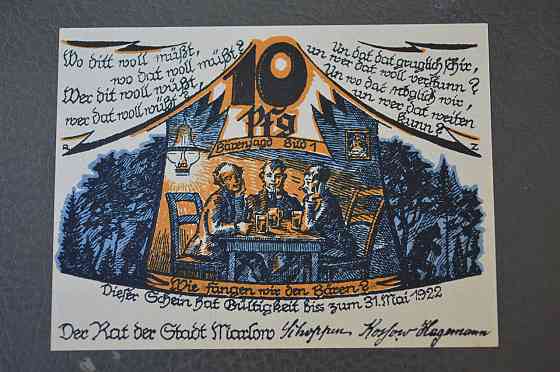 Wo ditt woll müßt,
wo dat woll müßt?
Wer dit woll wüßt,
wer dat woll wüßt?
Un dat dat gruglich schir,
un wer dat woll verstunn?
Un wo dat möglich wir,
un wer dat weiten
kunn?
10
Pfg
Bärenjagd Bild 1
R
Z
Wie fangen wir den Bären?
Dieser Schein hat Gültigkeit bis zum 31. Mai 1922
Der Rat der Stadt Marlow Schoppen Hagemann